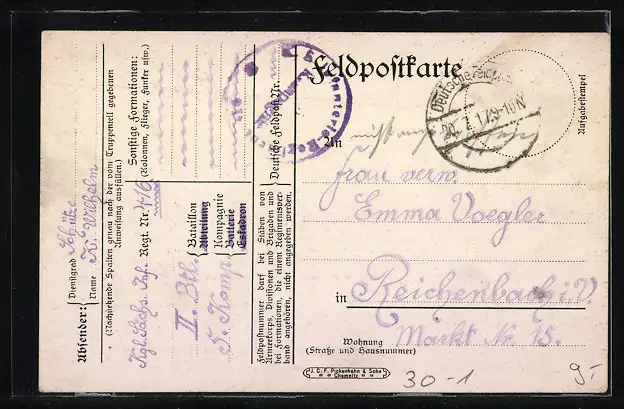 Feldpostkarte
An
Frau verw.
Emma Voegler
in Reichenbach i. V.
Markt Nr. 15.
Wohnung
(Straße und Hausnummer)
Aufgabestempel
Deutsche Feldpost
20.7.17.9-10N
J. C. F. Pickenhahn & Sohn
Chemnitz
30-1
9-
Absender:
Dienstgrad Schütze
Name K. Wilhelm
(Nachstehende Spalten genau nach der vom Truppenteil gegebenen
Anweisung ausfüllen.)
Sonstige Formationen:
(Kolonnen, Flieger, Funker usw.)
Kgl. Sächs. Inf. Regt. Nr.
II. Btl.
Bataillon
Abteilung
5. Komp.
Kompagnie
Batterie
Eskadron
Deutsche Feldpost Nr.
Feldpostnummer darf bei Stäben von
Armeekorps, Divisionen und Brigaden und
bei Formationen, die einem Regimentsver-
band angehören, nicht angegeben werden.